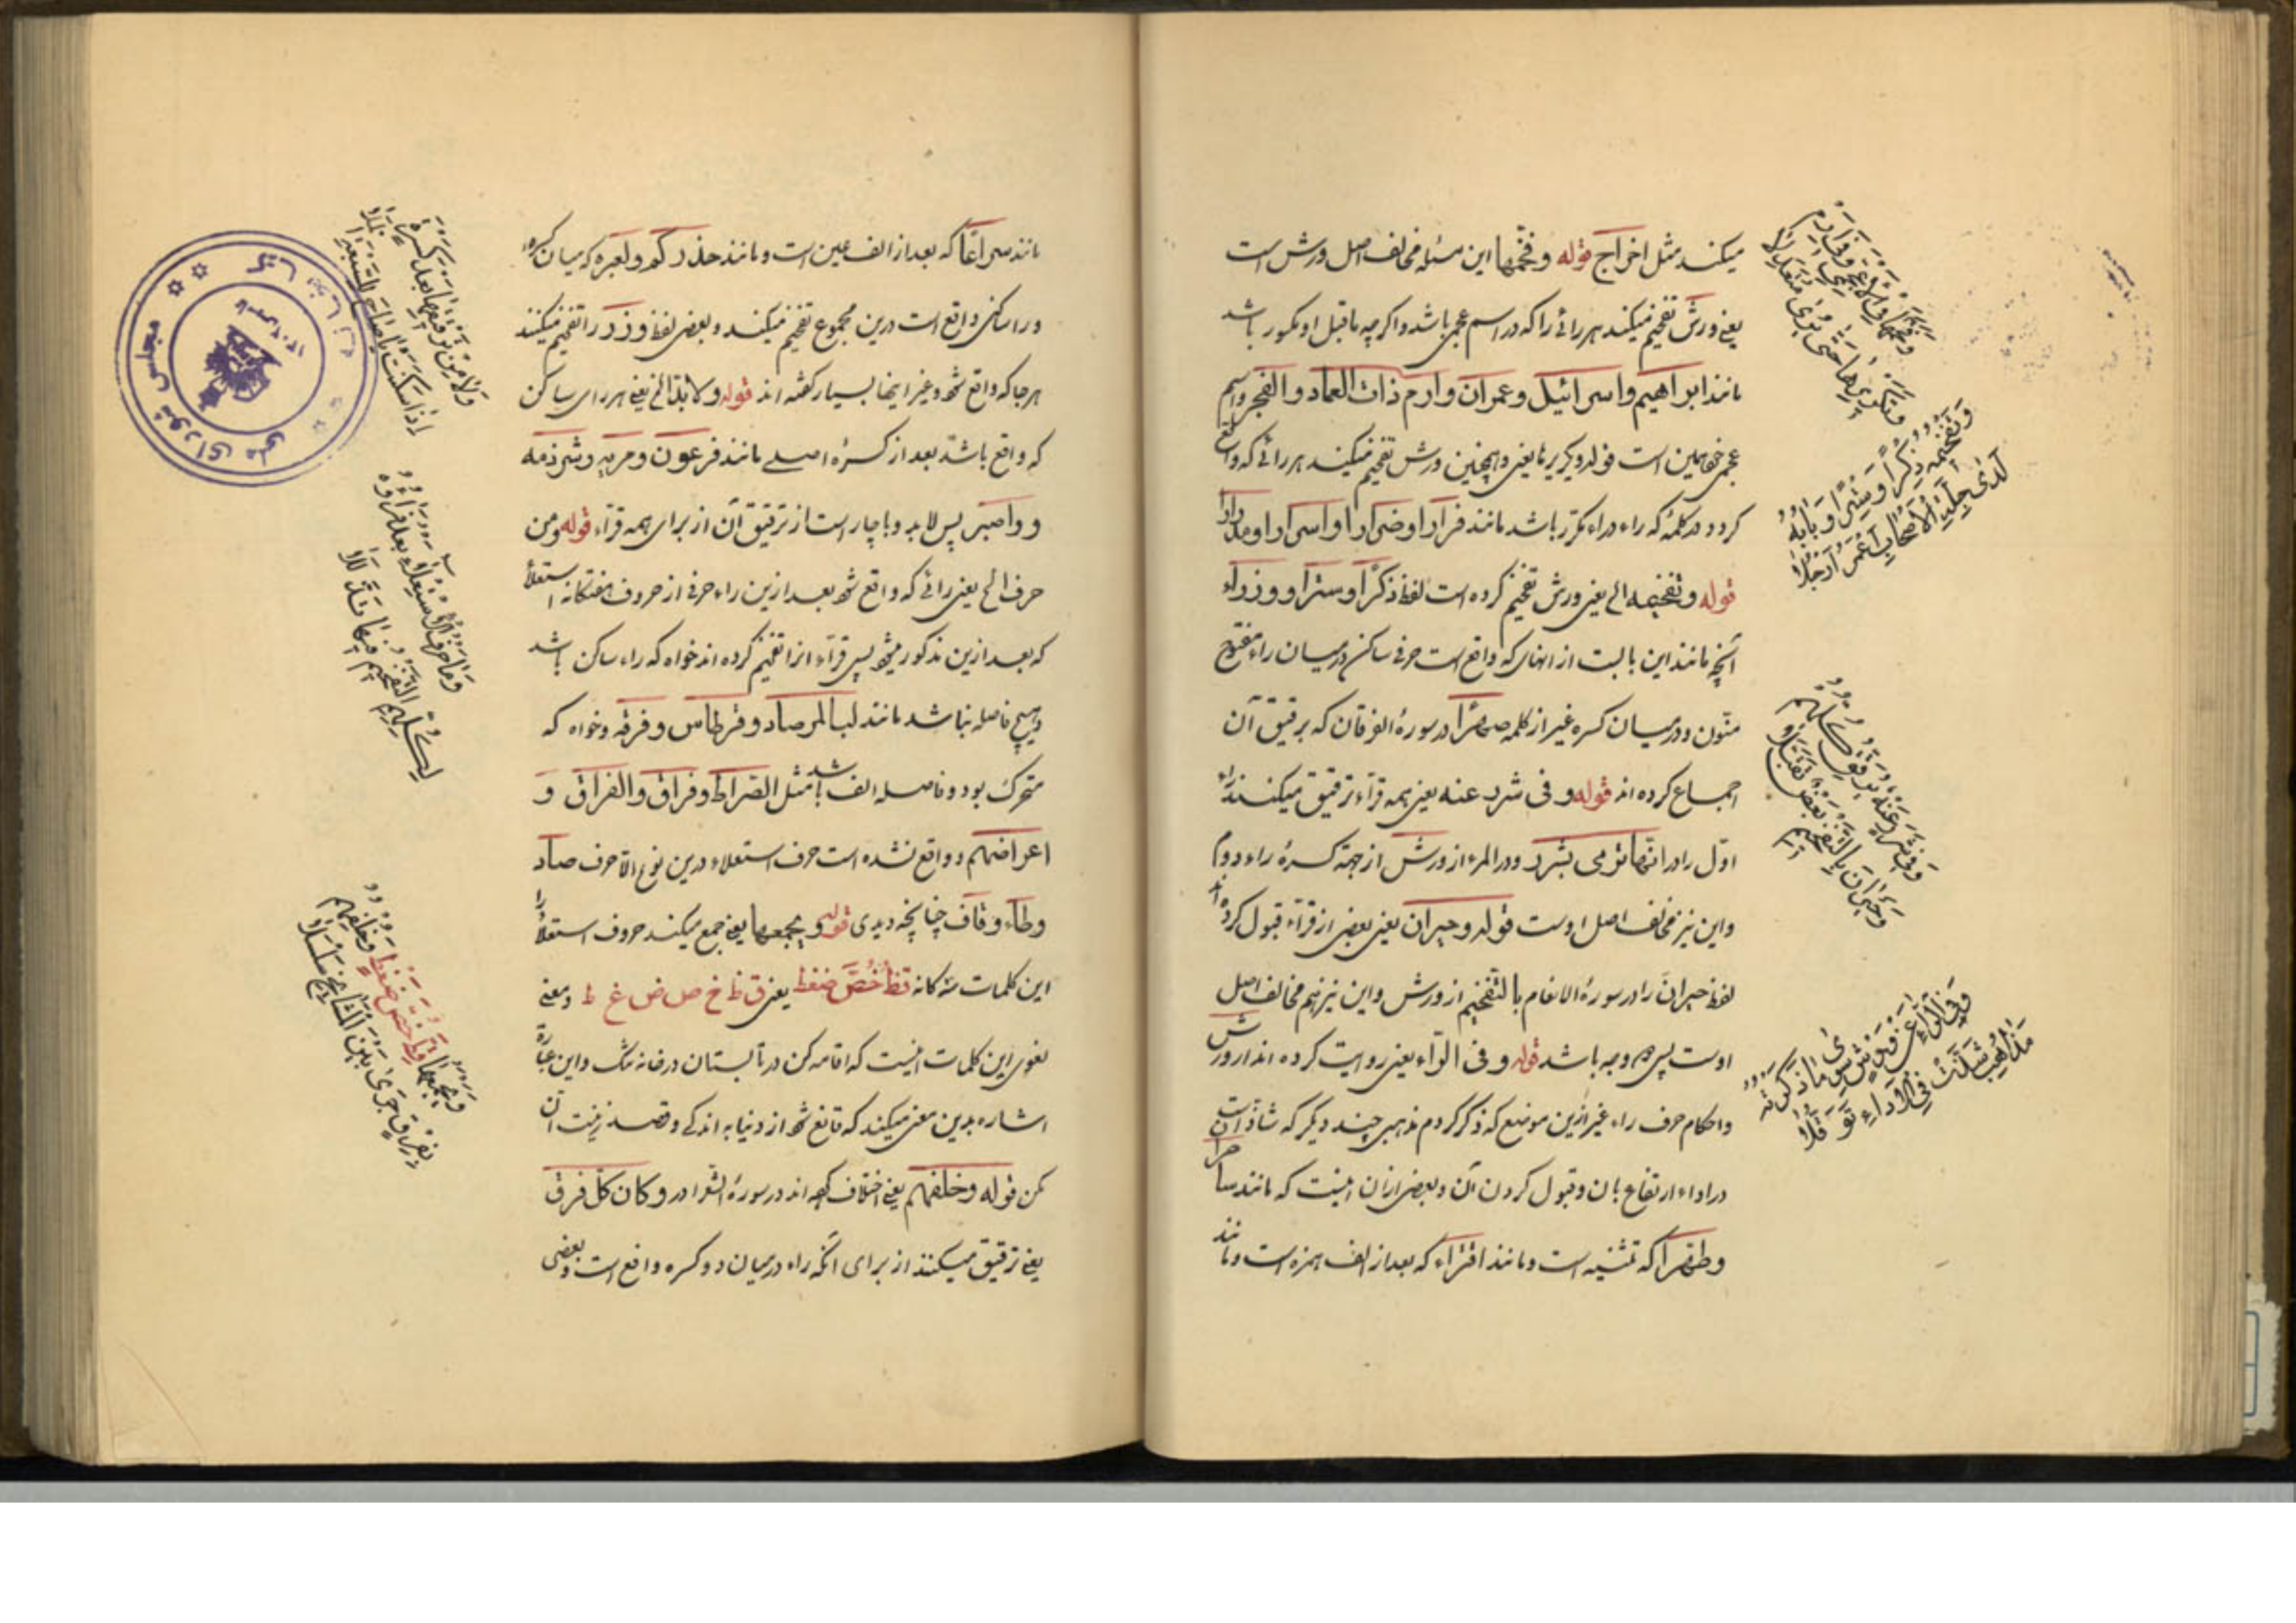 میکنند مثل اخراج قوله وفخّمها این مسئله مخالف اصل ورش است
یعنی ورش تفخیم میکنند هر رائی را که در اسم عجمی باشد و اگرچه ماقبل او مکسور باشد
مانند ابراهیم واسرائیل وعمران وارم ذات العماد والفجر واسم
عجمی همین است قوله وتکریرها یعنی وهمچنین ورش تفخیم میکنند هر رائی که واقع
کردد در کلمهٔ که راء در او مکرّر باشد مانند فرارا وضرارا واسرارا ومدرارا
قوله وتفخیمه الخ یعنی ورش تفخیم کرده است لفظ ذکرًا وسترا ووزرا و
آنچه مانند این بابست از انهای که واقع است حرفی ساکن در میان راء مفتوح
منوّن ودر میان کسره غیر از کلمه صهرًا در سورهٔ الفرقان که برقیق آن
اجماع کرده اند قوله وفی شرر عنه یعنی همه قرّاء ترقیق میکنند راء
اوّل را در انها ترمی بشرر ودر المرء از ورش از جهة کسرهٔ راء دوم
واین نیز مخالف اصل اوست قوله وحیران یعنی بعضی از قرّاء قبول کرده اند
لفظ حیران را در سورهٔ الانعام بالتفخیم از ورش واین نیز هم مخالف اصل
اوست پس دو وجه باشد قوله وفی الرّاء یعنی روایت کرده اند از ورش
واحکام حرف راء غیر ازین موضع که ذکر کردم مذهبی چند دیکر که شاذّ است
در اداء ارتفاع بان وقبول کردن آن وبعضی ازان اینست که مانند ساحرا
وطهرا که تثنیه است ومانند افتراء که بعد از الف همزه است ومانند
وفخّمها فی الاعجمیّ وفی ارم
وتکریرها حتّی یری متعدّلا
وتفخیمه ذکرًا وسترًا وبابه
لدی جلّة الاصحاب اعمر ارحلا
وفی شررٍ عنه یرقّق کلّهم
وحیران بالتّفخیم بعضٌ تقبّلا
وفی الرّاء عن ورشٍ سوی ما ذکرته
مذاهب شذّت فی الاداء توقّلا
مانند سراعًا که بعد از الف عین است ومانند حذرکم ولعبرة که میان کسره
وراء ساکنی واقع است درین مجموع تفخیم میکنند وبعضی لفظ وزر را تفخیم میکنند
هر جا که واقع شود وغیر اینها بسیار کفته اند قوله ولا بدّ الخ یعنی هر رای ساکن
که واقع باشد بعد از کسرهٔ اصلی مانند فرعون ومریه وشرذمه
وواصبر پس لابد وناچار است از ترقیق آن از برای همه قرّاء قوله ومن
حرف الخ یعنی رائی که واقع شود بعد ازین راء حرفی از حروف هفتکانه استعلاء
که بعد ازین مذکور میشود پس قرّاء انرا تفخیم کرده اند خواه که راء ساکن باشد
وهیچ فاصله نباشد مانند لبالمرصاد وقرطاس وفرقه وخواه که
متحرک بود وفاصله الف باشد مثل الصّراط وفراق والفراق و
اعراضهم وواقع نشده است حرف استعلاء درین نوع الّا حرف صاد
وطاء وقاف چنانچه دیدی قوله ویجمعها یعنی جمع میکند حروف استعلا را
این کلمات سه کانه قظ خصّ ضغط یعنی ق ظ خ ص ض غ ط ومعنی
لغوی این کلمات اینست که اقامه کن در تابستان در خانه تنک واین عبارة
اشاره بدین معنی میکند که قانع شو از دنیا به اندکی وقصد زینت آن
مکن قوله وخلفهم یعنی اختلاف کرده اند در سورهٔ الشعرا در وکان کلّ فرق
یعنی ترقیق میکنند از برای آنکه راء در میان دو کسره واقع است وبعضی
ولا بدّ من ترقیقها بعد کسرةٍ
اذا سکنت یا صاح للسّبعة الملا
وما حرف الاستعلاء بعد فراؤه
لکلّهم التّفخیم فیها تذلّلا
ویجمعها قظ خصّ ضغطٍ وخلفهم
بفرقٍ جری بین المشایخ سلسلا
مجلس شورای ملی